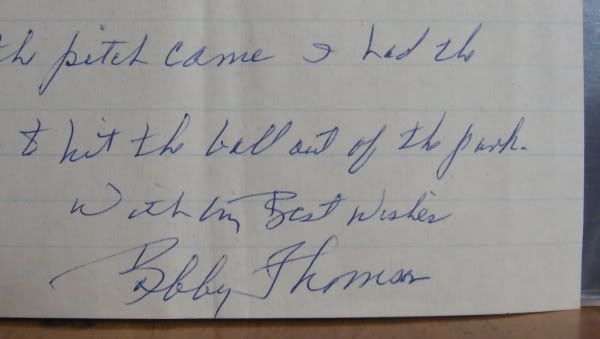 the pitch came I had the
to hit the ball out of the park.
With my Best Wishes
Bobby Thomson